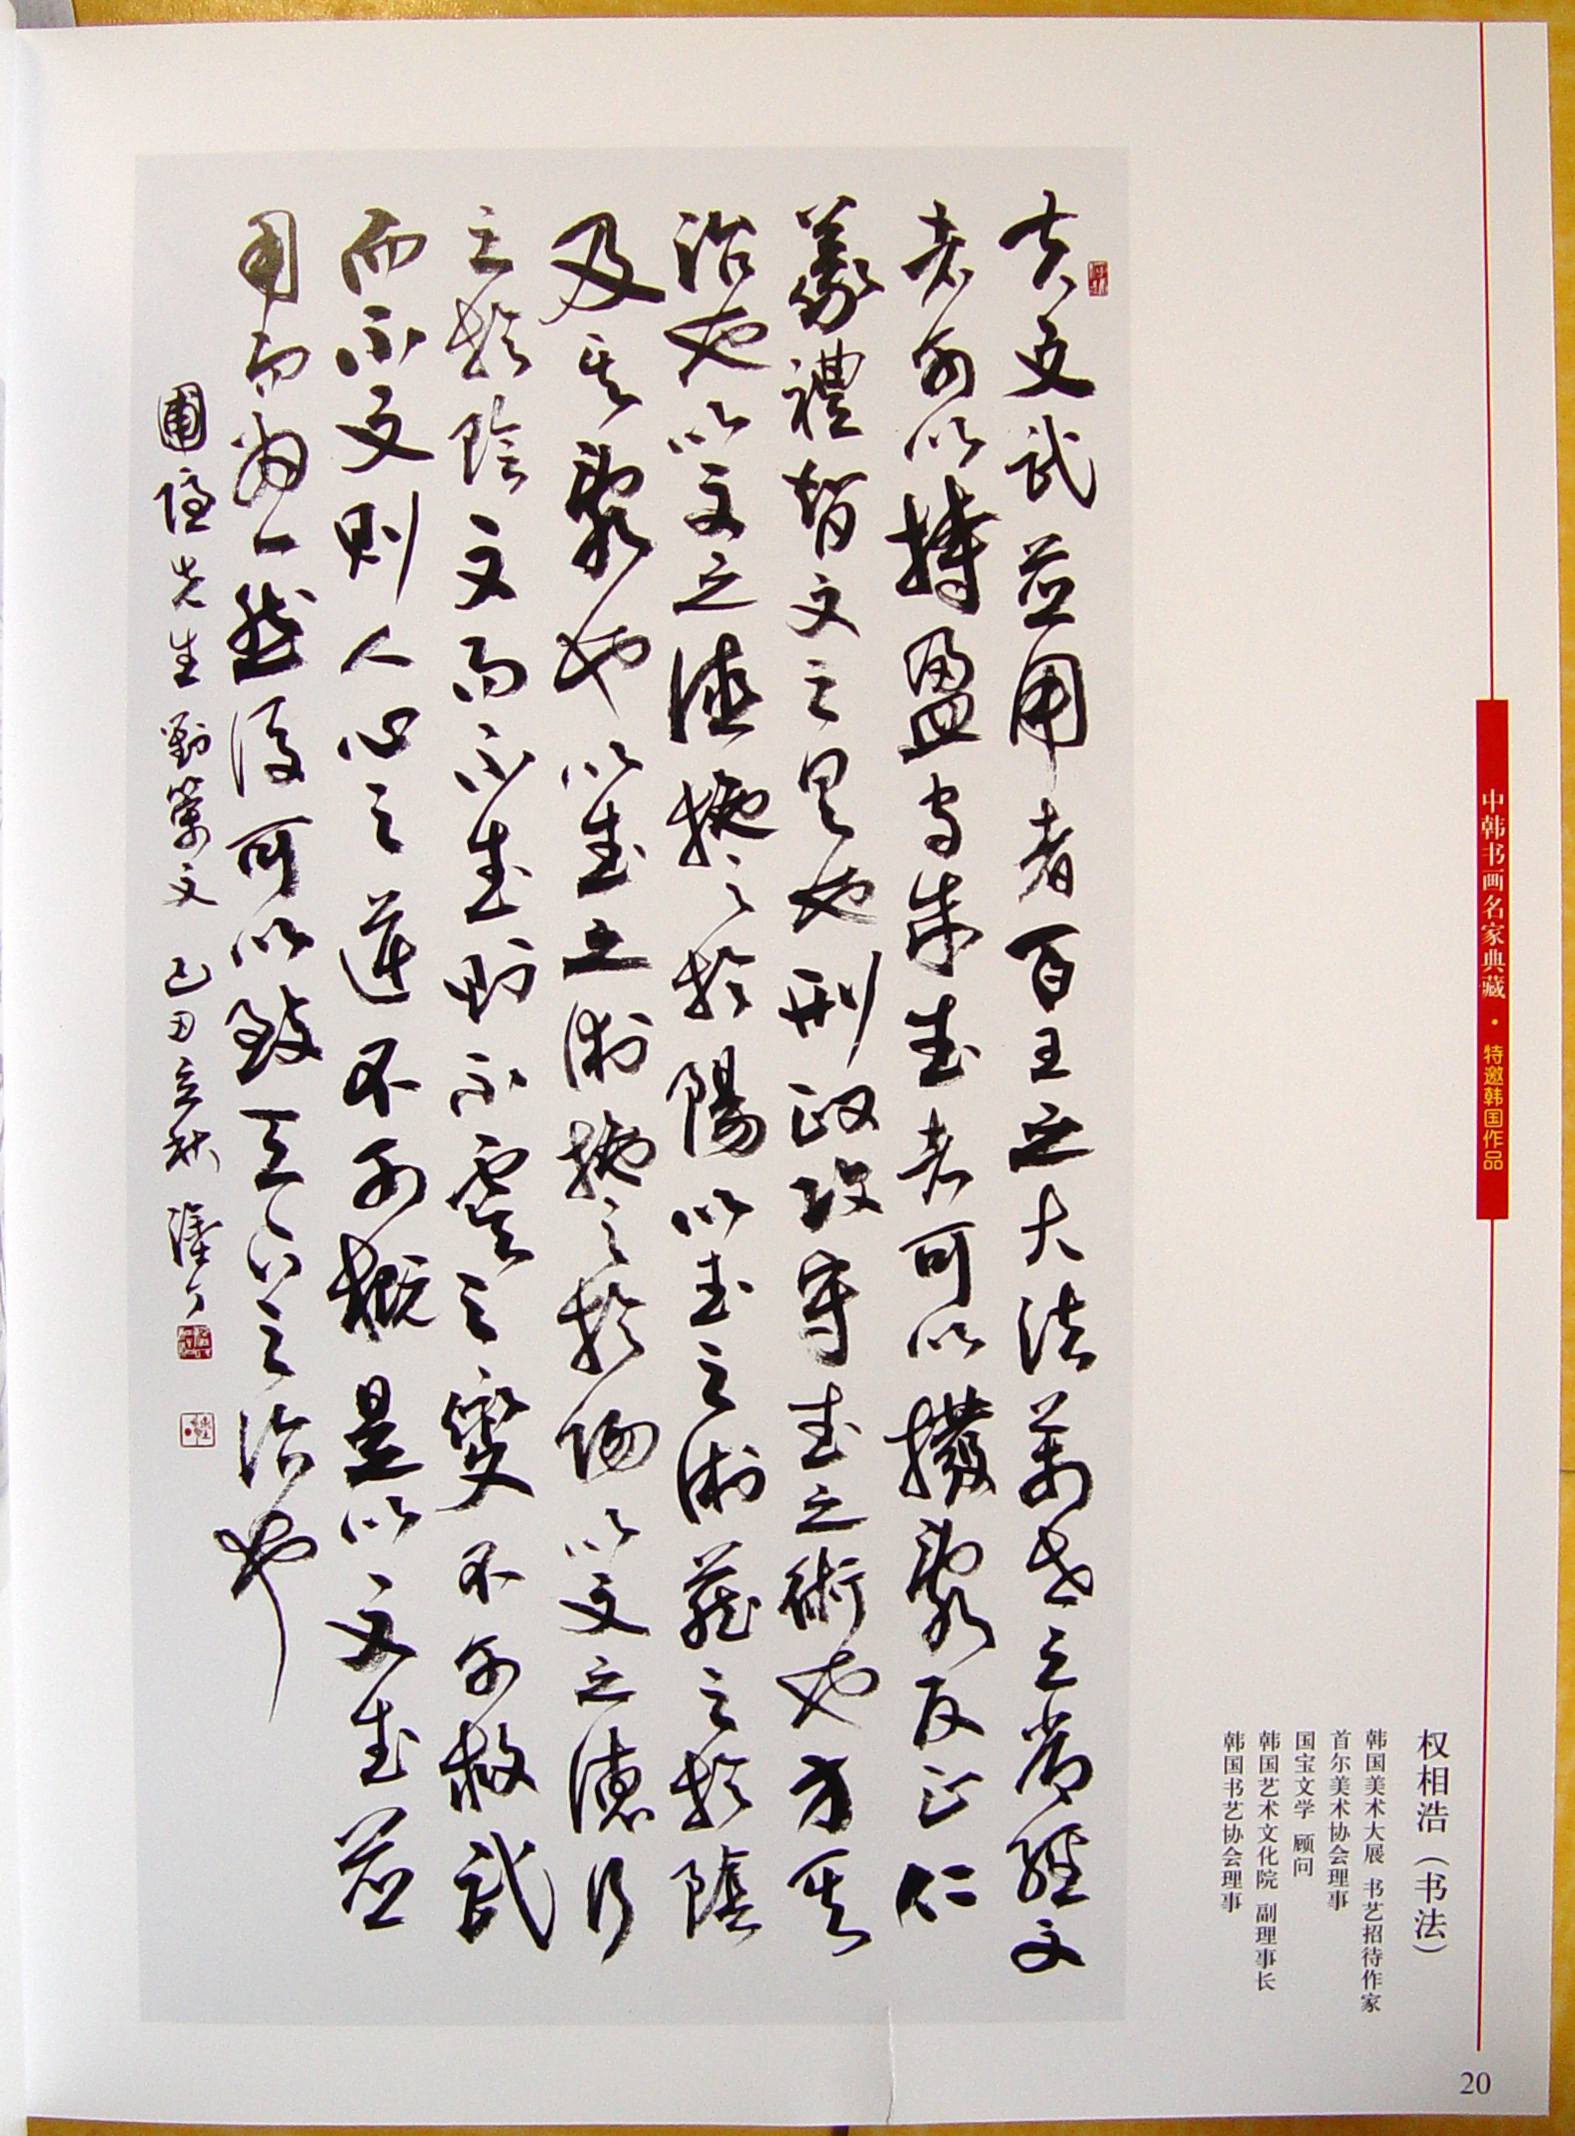 中韩书画名家典藏·特邀韩国作品
权相浩（书法）
韩国美术大展 书艺招待作家
首尔美术协会理事
国宝文学 顾问
韩国艺术文化院 副理事长
韩国书艺协会理事
夫文武並用者百王之大法萬世之常經文
者可以持盈守成武者可以撥亂反正仁
義禮智文之具也刑政攻守武之術也方其
治也以文之德施之於陽以武之術藏之於陰
及其亂也以武之術施之於陽以文之德行
之於陰文而不武則不虞之變不可救武
而不文則人心之不可概是以文武並
用而為一然後可以致天下之治也
圃隱先生對策文 己丑立秋
20